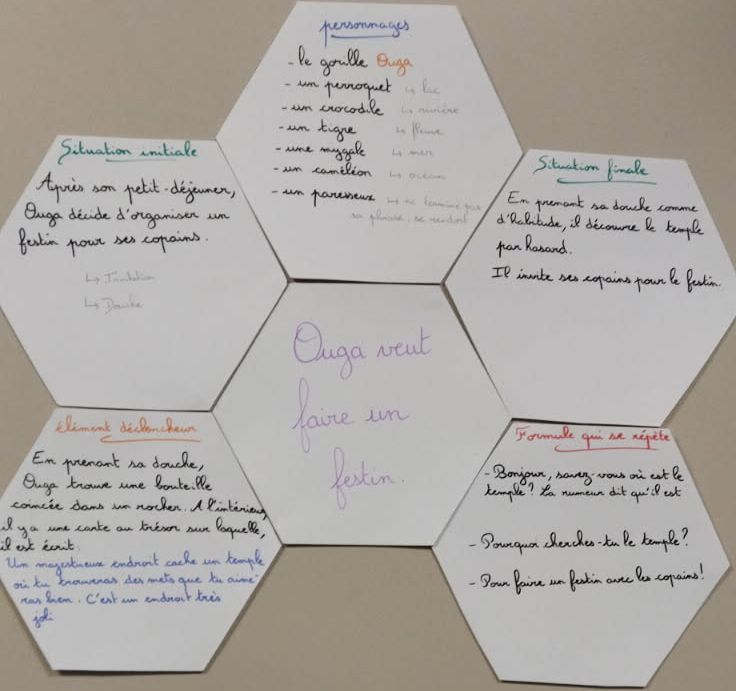 personnages
- le gorille Ouga
- un perroquet ↳ lac
- un crocodile ↳ rivière
- un tigre ↳ fleuve
- une mygale ↳ mer
- un caméléon ↳ océan
- un paresseux ↳ ne termine pas
sa phrase, se rendort
Situation initiale
Après son petit-déjeuner,
Ouga décide d'organiser un
festin pour ses copains.
↳ Invitation
↳ Douche
Situation finale
En prenant sa douche comme
d'habitude, il découvre le temple
par hasard.
Il invite ses copains pour le festin.
Ouga veut
faire un
festin.
élément déclencheur
En prenant sa douche,
Ouga trouve une bouteille
coincée dans un rocher. A l'intérieur,
il y a une carte au trésor sur laquelle,
il est écrit.
Un majestueux endroit cache un temple
où tu trouveras des mets que tu aime-
ras bien. C'est un endroit très
joli
Formule qui se répète
- Bonjour, savez-vous où est le
temple? La rumeur dit qu'il est
- Pourquoi cherches-tu le temple?
- Pour faire un festin avec les copains!